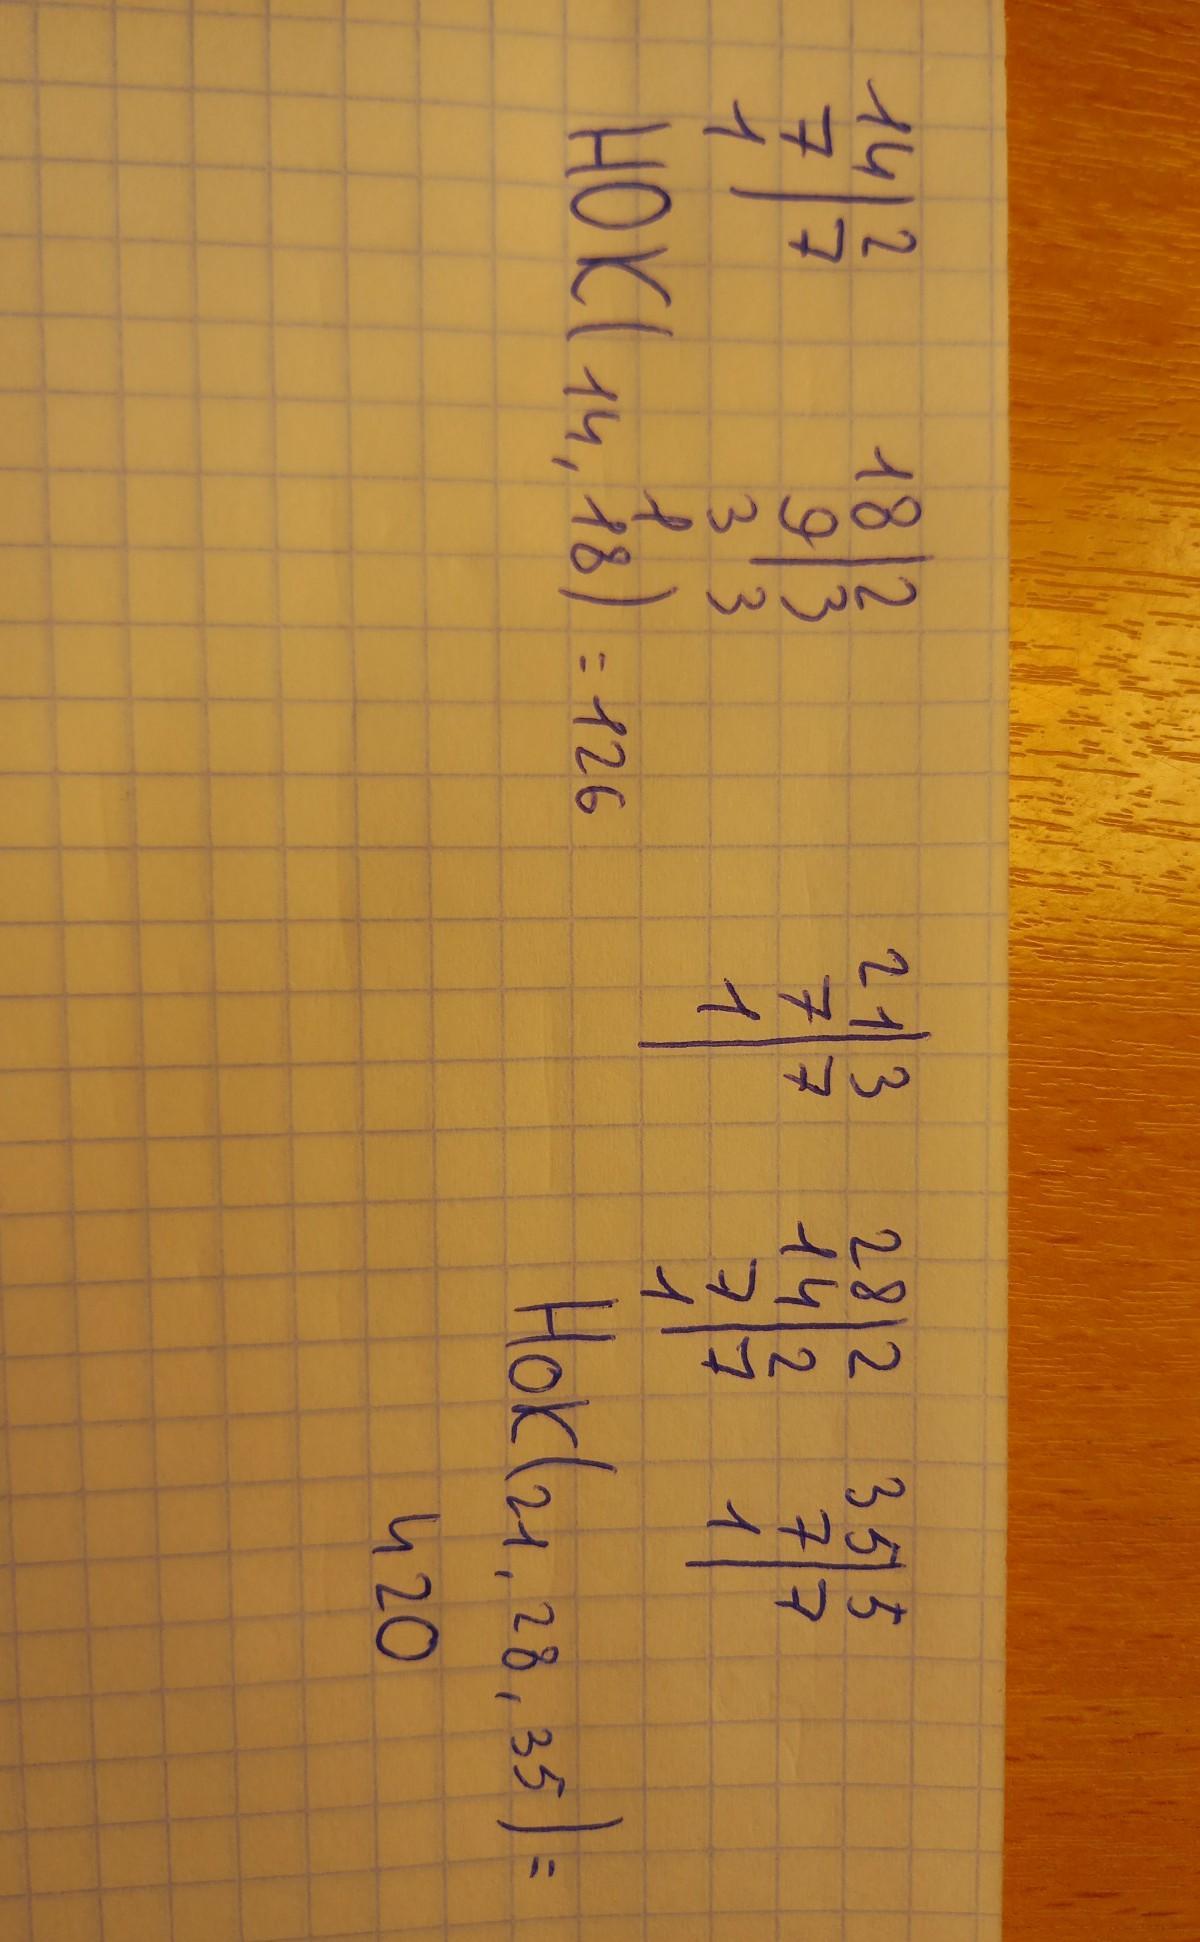 14|2 18|2 21|3 28|2 35|5
7|7 9|3 7|7 14|2 7|7
1| 3 3 1| 7|7 1|
1 1
НОК(14, 18) = 126 НОК(21, 28, 35) =
420